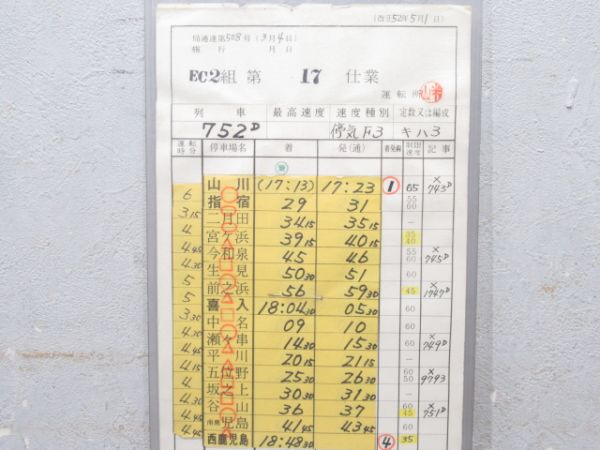 (改正52年5月1日)
局通達第508号(3月4日)
施行 月 日
EC2組 第 17 仕業
運転所
列車 最高速度 速度種別 定数又は編成
752D 停気F3 キハ3
運転時分 停車場名 着 発(通) 着発線 制限速度 記事
山川 (17:13) 17:23 1 65 × 743D
6
指宿 29 31 55 60
3.15
二月田 34 15 35 15 —
4
宮ヶ浜 39 15 40 15 35 40
4.45
今和泉 45 46 55 60 × 745D
4.30
生見 50 30 51 60
5
前之浜 56 59 30 45 × 1747D
5
喜入 18:04 30 05 30 60
3.30
中名 09 10 60
4.30
瀬々串 14 30 15 30 60 × 749D
4.45
平川 20 15 21 15 —
4.15
五位野 25 30 26 30 60 50 9793
4
坂之上 30 30 31 30 —
4.30
谷山 36 37 60 45 × 751D
4.45
南鹿児島 41 45 43 45 60
4.45
西鹿児島 18:48 30 4 35